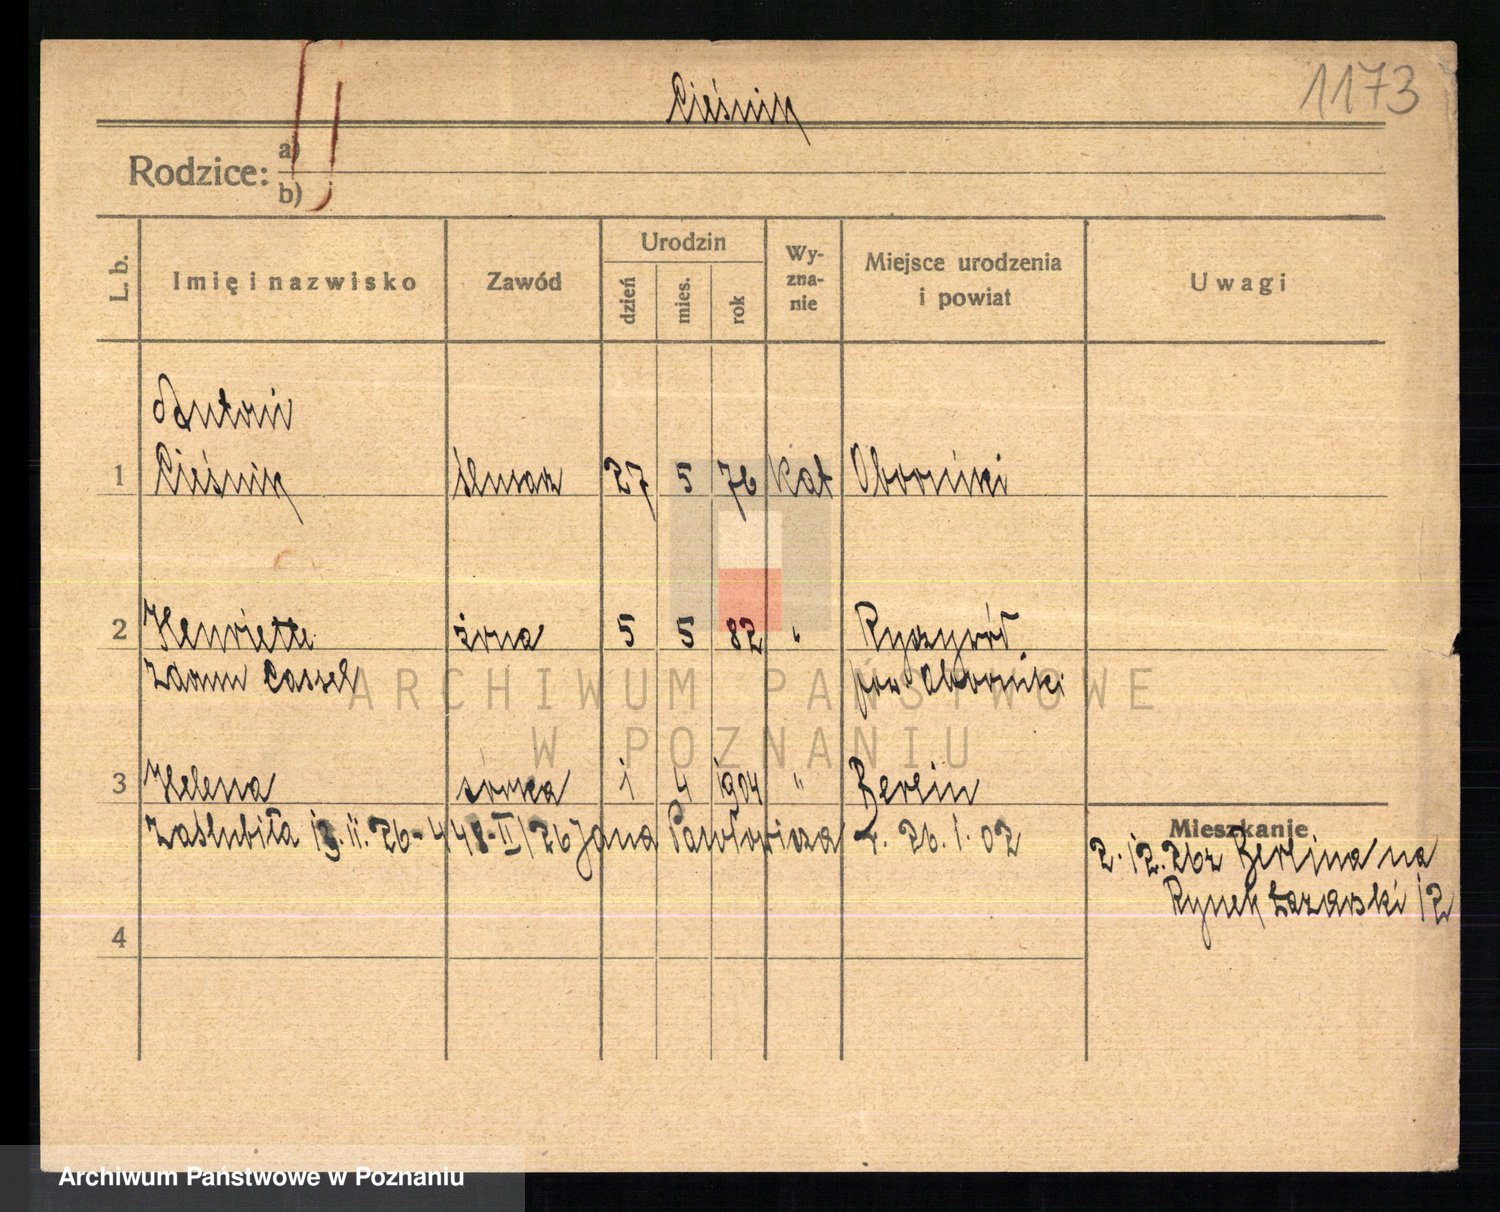 1173
Cieśnik
Rodzice:
a)
b)
L. b.
Imię i nazwisko
Zawód
Urodzin
dzień
mies.
rok
Wy-
zna-
nie
Miejsce urodzenia
i powiat
Uwagi
Antoni
1 Cieśnik ślusarz 27 5 76 Kat Oborniki
2 Henriette żona 5 5 82 " Ryczywół
Cassel pow Oborniki
3 Helena córka 1 4 1904 " Berlin
Zaślubiła 13.II.26 - 448-II/26 Jana Pawłowicza r. 26.1.02
Mieszkanie
2.12.26 z Berlina na
Rynek Łazarski 12
4
ARCHIWUM PAŃSTWOWE
W POZNANIU
Archiwum Państwowe w Poznaniu